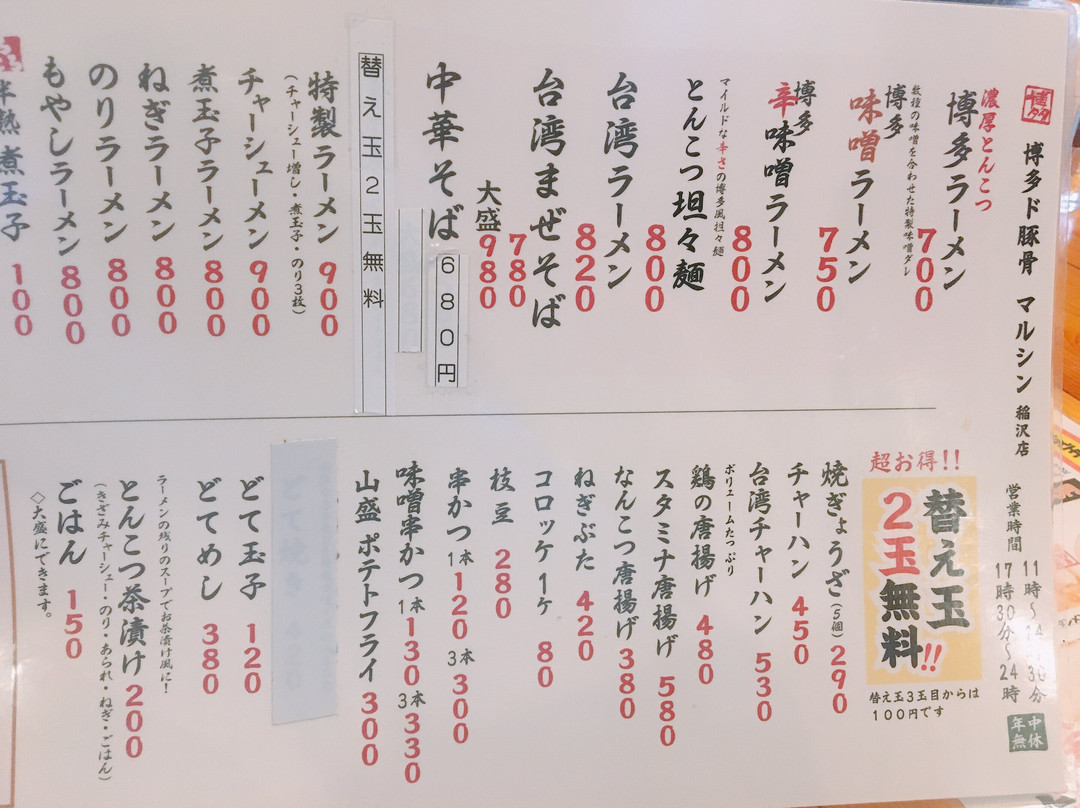 博多
博多ド豚骨 マルシン 稲沢店
営業時間
11時～14時30分
17時30分～24時
年中無休
濃厚とんこつ
博多ラーメン 700
数種の味噌を合わせた特製味噌ダレ
博多味噌ラーメン 750
博多辛味噌ラーメン 800
マイルドな辛さの博多風担々麺
とんこつ坦々麺 800
台湾ラーメン 820
台湾まぜそば 780
大盛 980
中華そば 680円
替え玉2玉無料
特製ラーメン 900
(チャーシュー増し・煮玉子・のり3枚)
チャーシューメン 900
煮玉子ラーメン 800
ねぎラーメン 800
のりラーメン 800
もやしラーメン 800
半熟煮玉子 100
超お得!!
替え玉
2玉無料!!
替え玉3玉目からは
100円です
焼ぎょうざ(5個) 290
チャーハン 450
台湾チャーハン 530
ボリュームたっぷり
鶏の唐揚げ 480
スタミナ唐揚げ 580
なんこつ唐揚げ 380
ねぎぶた 420
コロッケ1ヶ 80
枝豆 280
串かつ 1本 120 3本 300
味噌串かつ 1本 130 3本 330
山盛ポテトフライ 300
どて玉子 120
どてめし 380
ラーメンの残りのスープでお茶漬け風に!
とんこつ茶漬け 200
(きざみチャーシュー・のり・あられ・ねぎ・ごはん)
ごはん 150
◇大盛にできます。